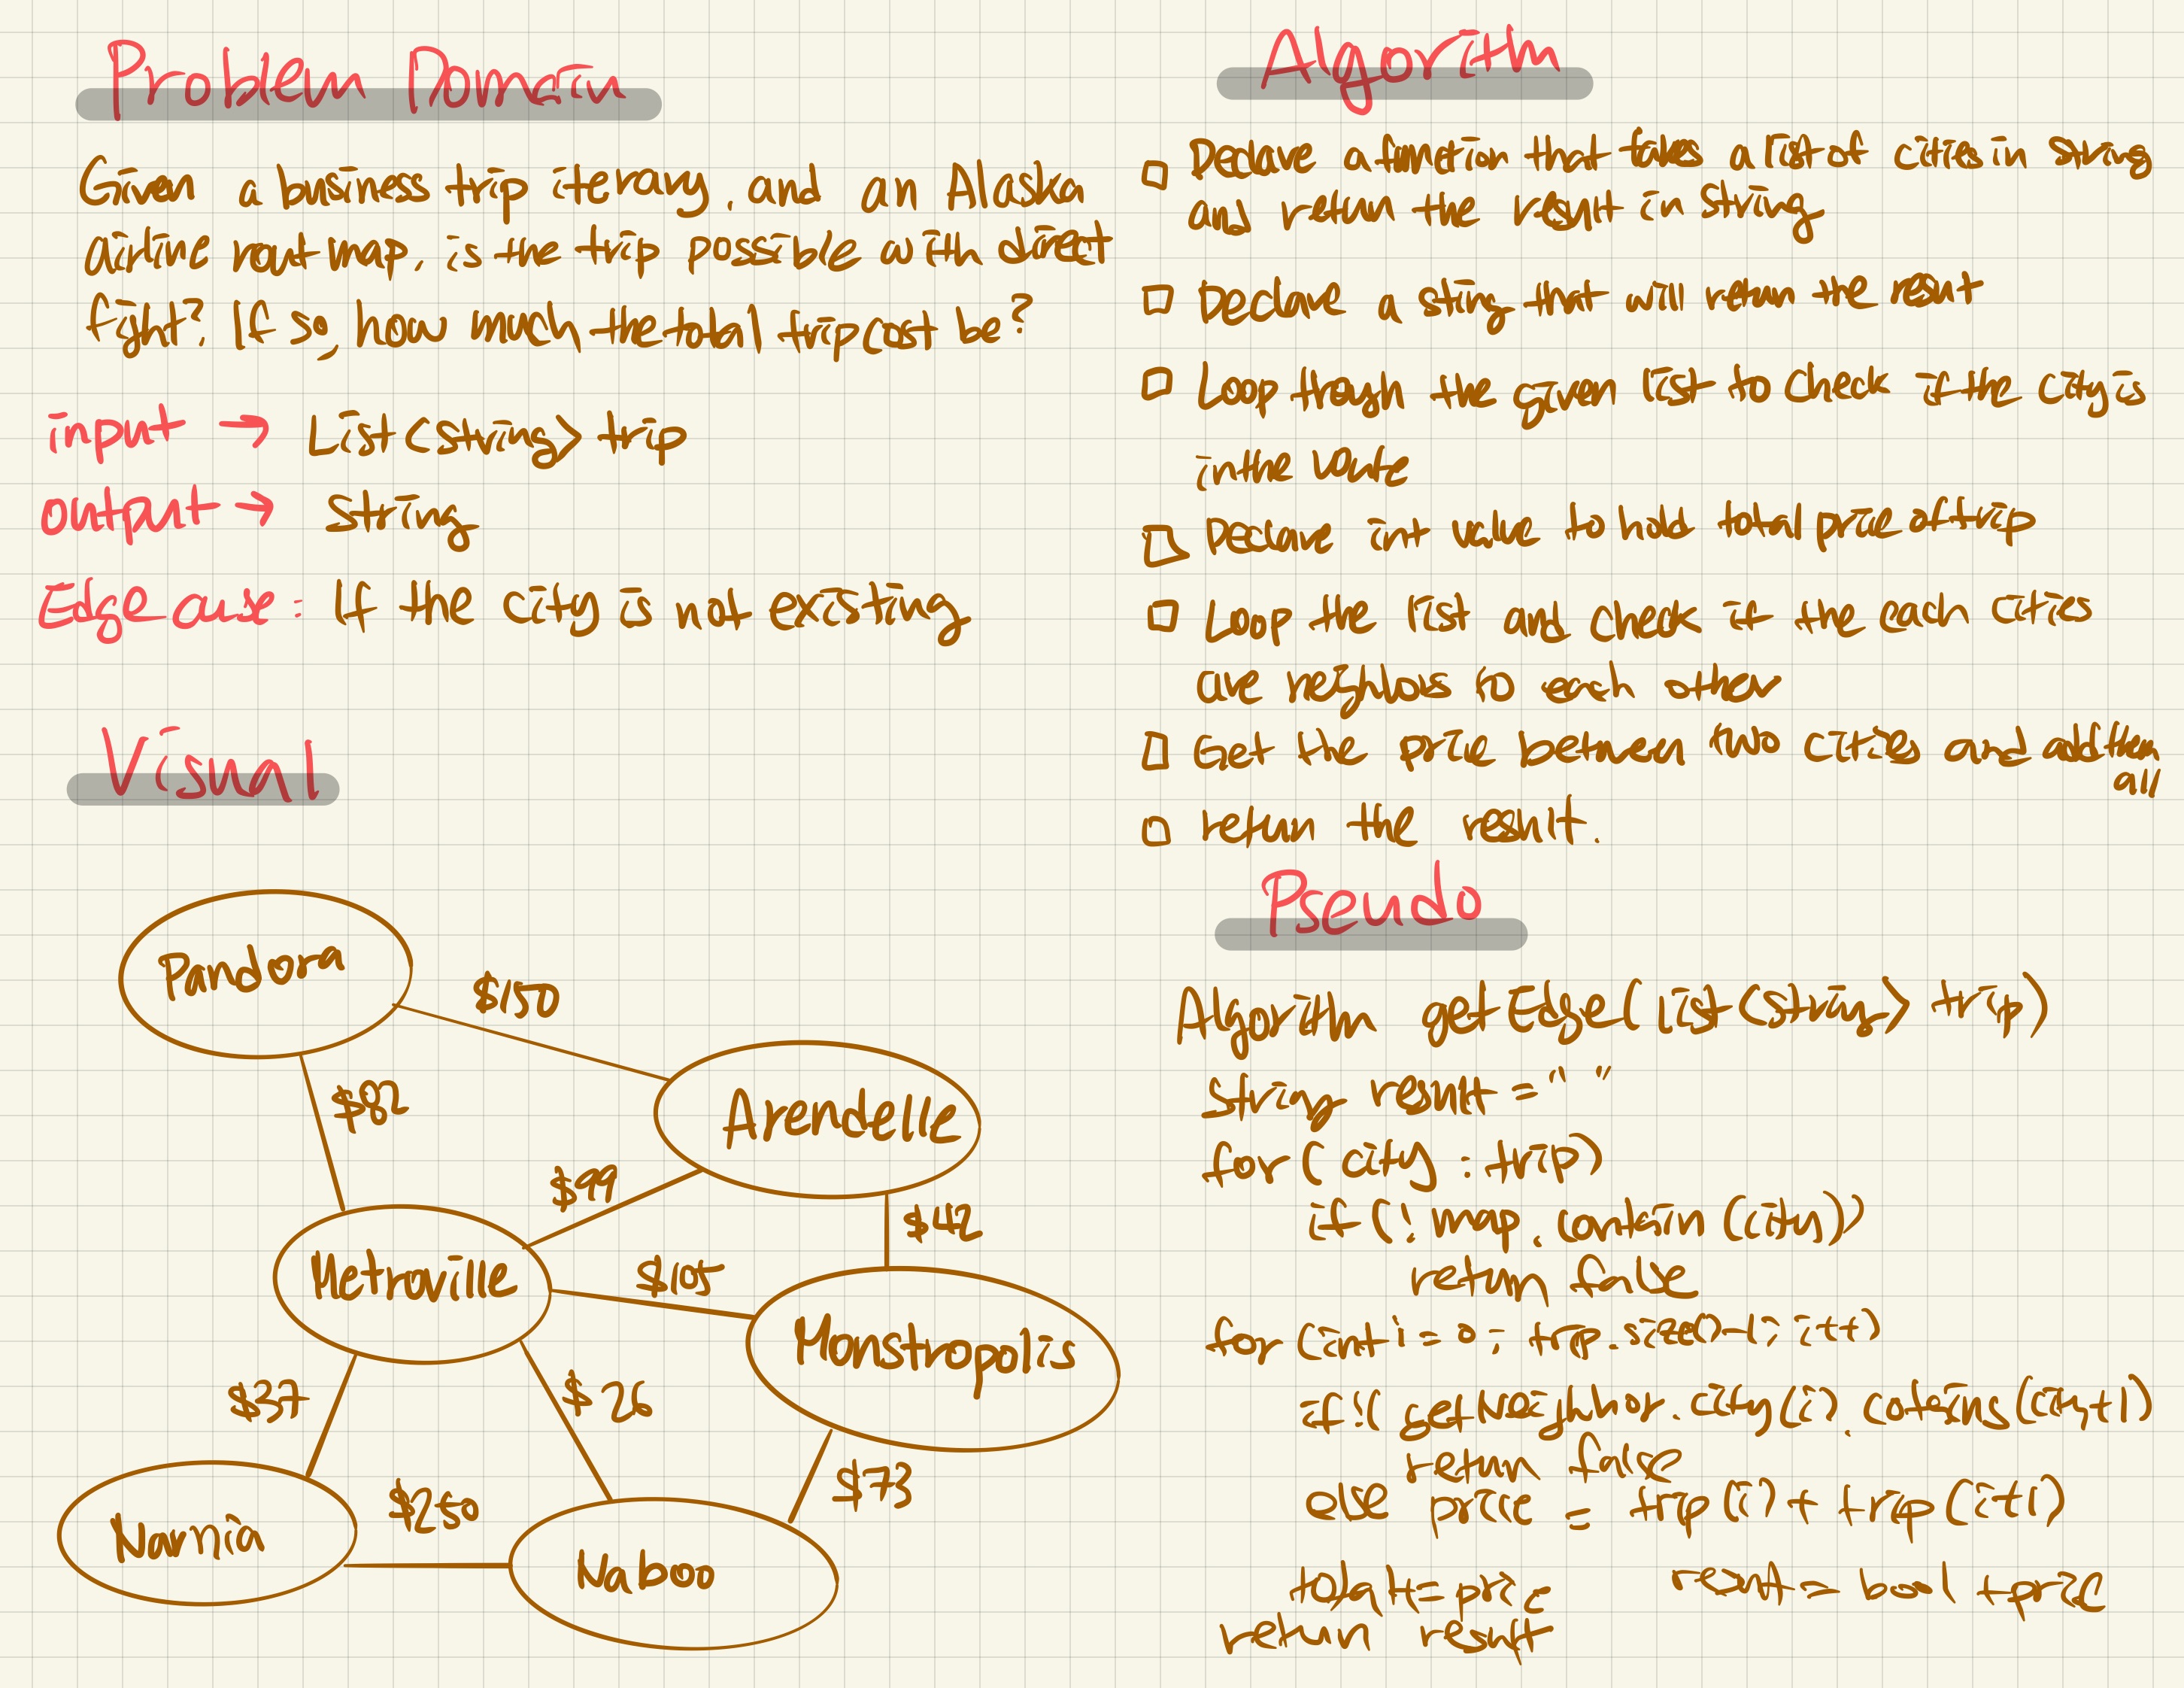 Problem Domain
Given a business trip iterary, and an Alaska
airline rout map, is the trip possible with direct
fight? If so, how much the total trip cost be?
input → List<string> trip
output → string
Edge case: If the city is not existing
Visual
Pandora
$150
$82
Arendelle
$99
$42
Metroville
$105
Monstropolis
$37
$26
$73
Narnia
$250
Naboo
Algorith
Declare a function that takes a list of cities in string
and return the result in string
Declare a sting that will return the result
Loop trough the given list to check if the city is
in the route
Declare int value to hold total price of trip
Loop the list and check if the each cities
are neighbors to each other
Get the price between two cities and add them
all
return the result.
Pseudo
Algorith getEdge(list<string> trip)
string result = " "
for (city : trip)
if (! map. contain (city))
return false
for (int i = 0; trip.size()-1; i++)
if !( getNeighbor.city(i). cotains(city+1)
return false
else price = trip(i) + trip(i+1)
total += price result = bool + price
return result